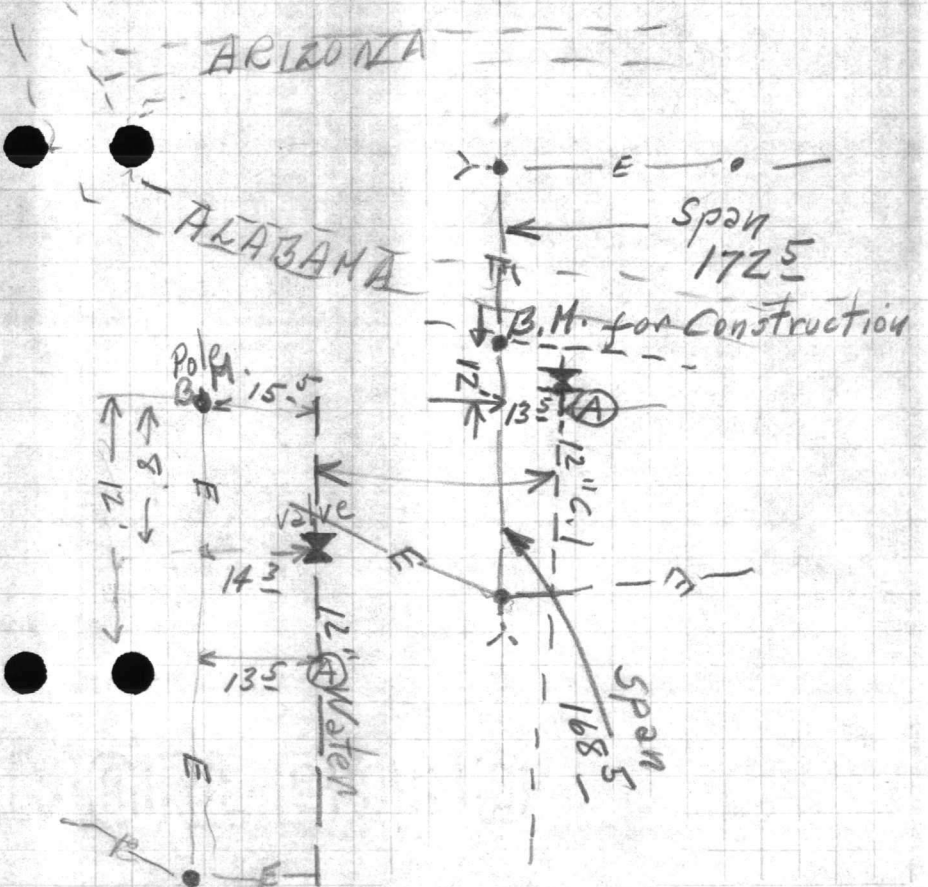 ARIZONA
E
Span
172 5
ALABAMA
E
B.M. for Construction
Pole
B.M.
15.5
12'
13 5
A
12'
8'
E
12" C.I
Valve
14 3
E
E
12"
13 5
A
Water
Span
168 5
E
E